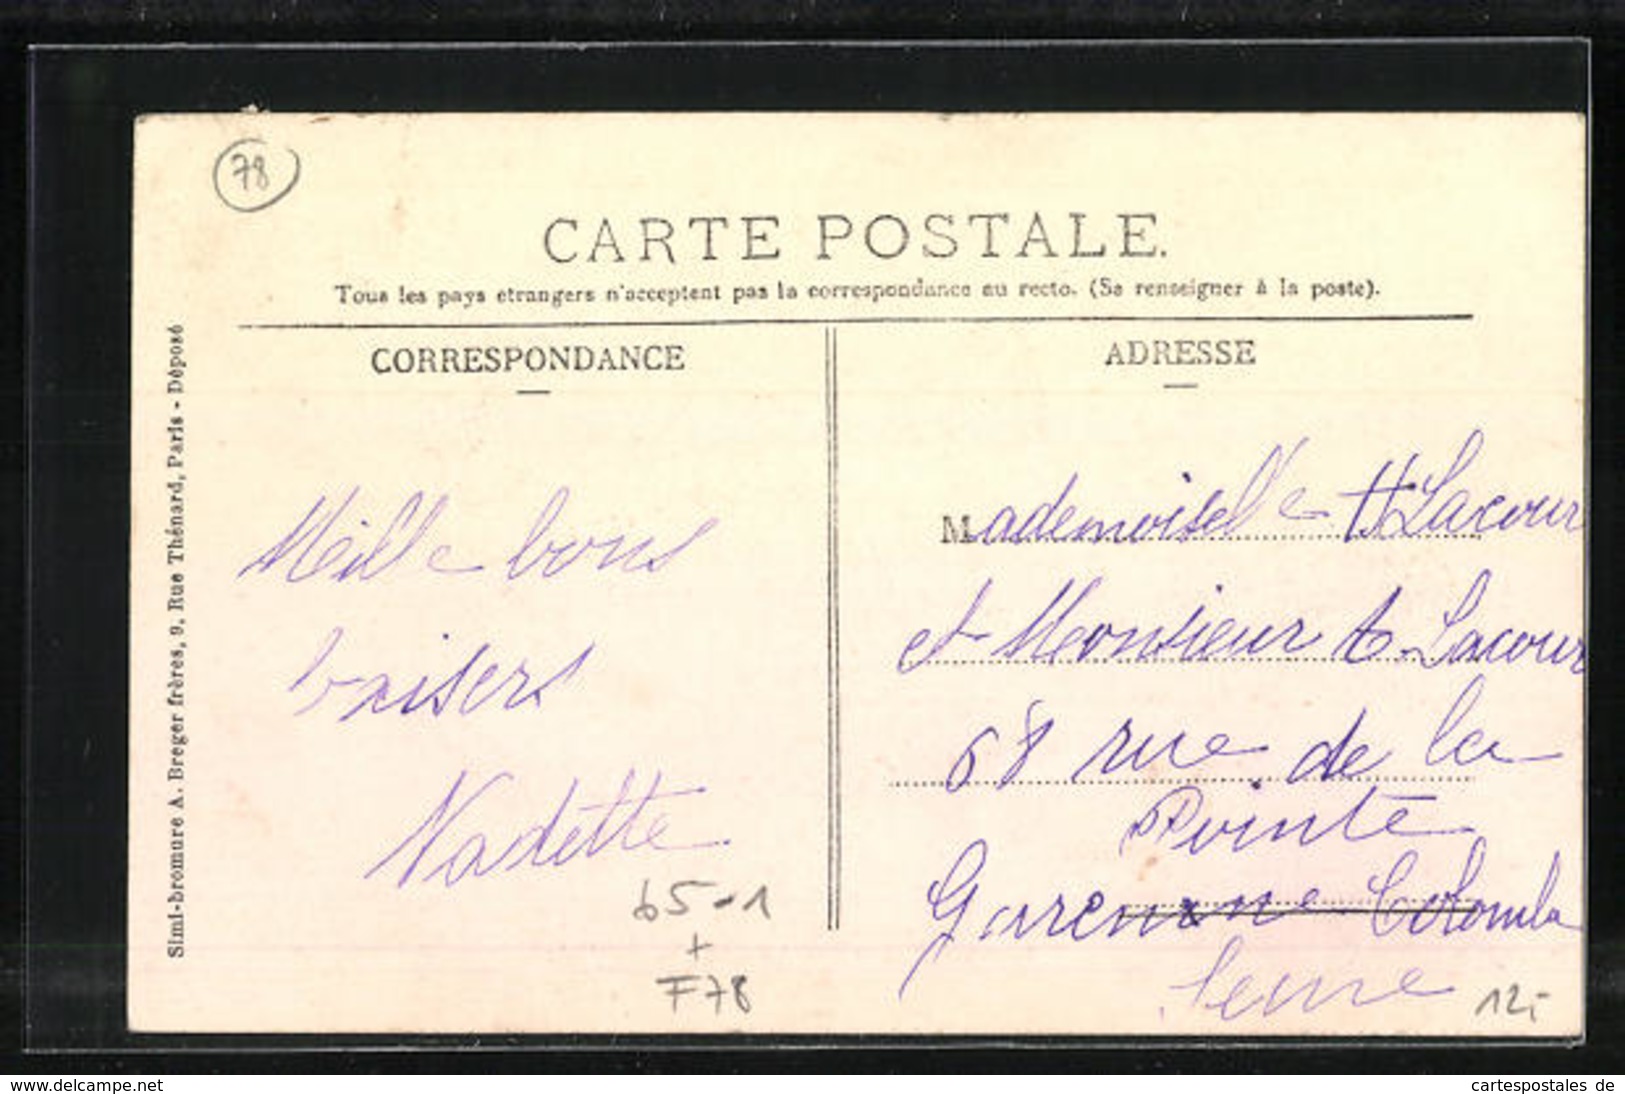 78
CARTE POSTALE.
Tous les pays etrangers n'acceptent pas la correspondance au recto. (Se renseigner à la poste).
CORRESPONDANCE
ADRESSE
Simi-bromure A. Breger frères, 9, Rue Thénard, Paris - Déposé
Mille bons
baisers
Nadette
65-1
+
F78
Mademoiselle H Lacour
et Monsieur A. Lacour
68 rue de la
Pointe
Garenne Colombe
Seine
12,-
www.delcampe.net
cartespostales de